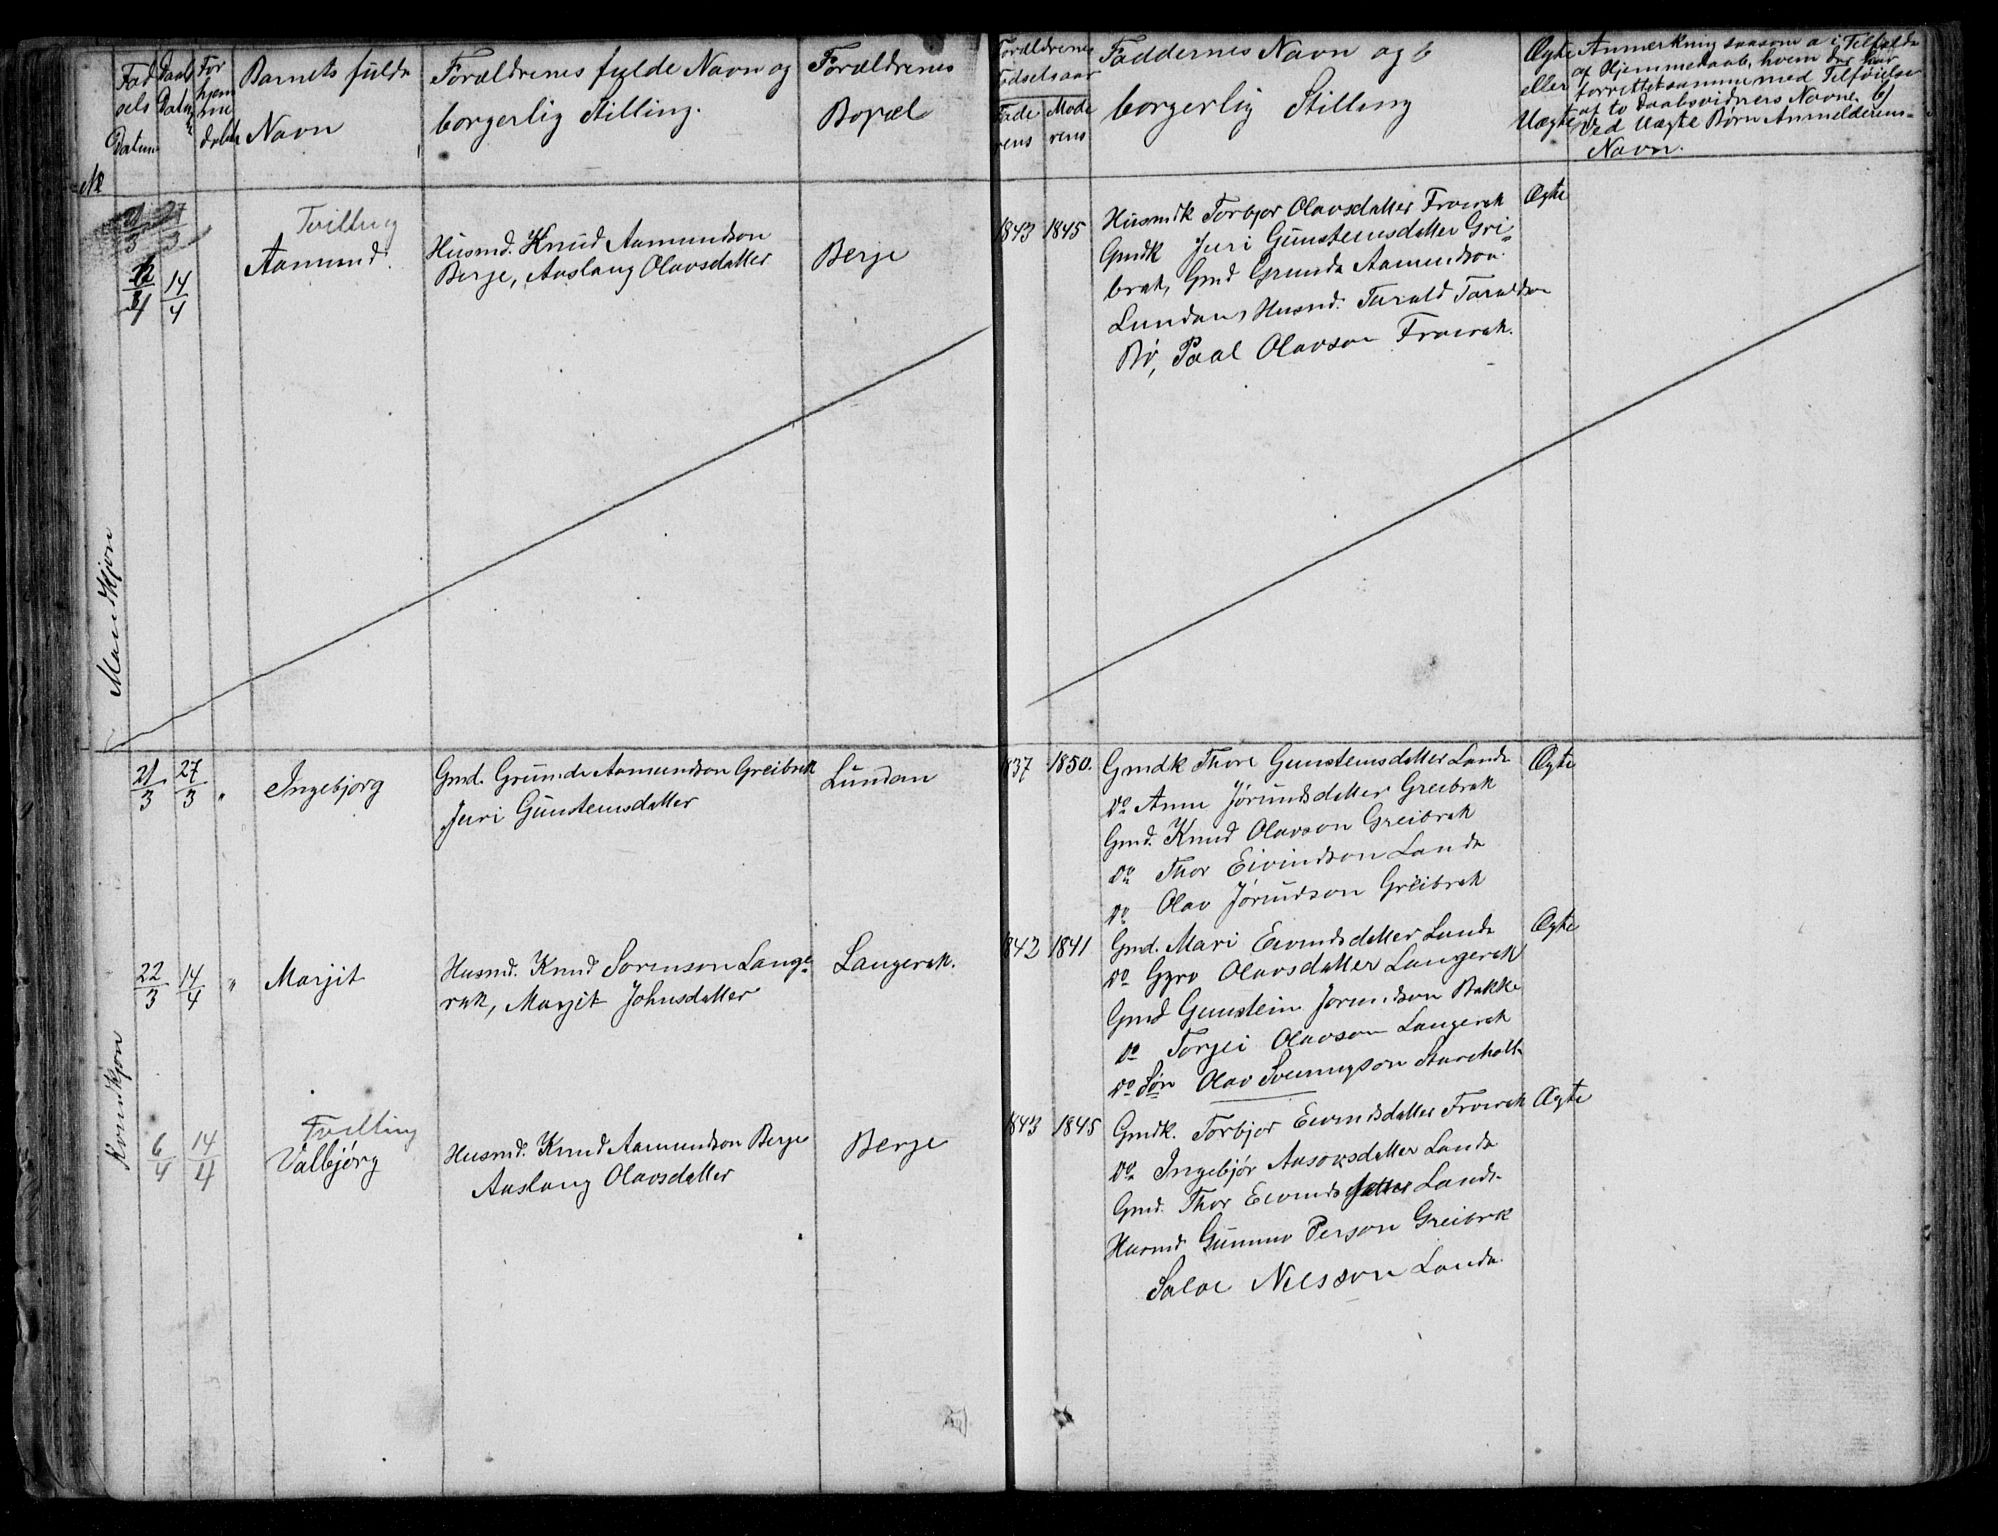 Fød
sels
Datum
Daabs
Datum
For
hjem
me
døbte
Barnets fulde
Navn
Forældrenes fylde Navn og
borgerlig Stilling.
Forældrenes
Bopæl
Forældrenes
Fødselsaar
Fade
rens
Mode
rens
Faddernes Navn og
borgerlig Stilling
Ægte
eller
Uægte
Anmerkning saasom a i Tilfælde
af Hjemmedaab, hvem der har
forrettet samme med Tilføielse
af to Daabsvidners Navne. b)
Ved Uægte Børn Anmelderens
Navn.
No
Mandkjøn
14/4
Tvilling
Aamund.
Husmd. Knud Aamundson
Berge, Aaslaug Olavsdatter
Berge
1843 1845
Husmdk Torbjor Olavsdatter Froirak
Gmdk Juri Gunsteinsdatter Gri-
brek, Gmd Grunde Aamundson
Lundan, Husmd. Tarald Taraldson
Bø, Paal Olavson Froirak.
Ægte
Kvindkjøn
21/3 27/3 "
Ingebjørg
Gmd. Grunde Aamundson Greibrek
Juri Gunsteinsdatter
Lundan
1837 1850.
Gmdk Thore Gunsteinsdatter Landa
Do Anne Jørundsdatter Greibrek
Gmd. Knud Olavson Greibrek
Do Thor Eivindson Landa
Do Olav Jørundson Greibrek
Ægte
22/3 14/4 "
Marjit
Husmd. Knud Sorenson Lange-
rak, Marjit Johnsdatter
Langerak.
1842 1841
Gmd. Mari Eivindsdatter Landa
Do Gyro Olavsdatter Langerak
Gmd Gunstein Jorundson Bakke
Do Torjei Olavson Langerak
Do Søn Olav Sveinungson
Ægte
6/4 14/4
Tvilling
Valbjørg
Husmd. Knud Aamundson Berge
Aaslaug Olavsdatter
Berge
1843 1845
Gmdk. Torbjor Eivindsdatter Froirak
Do Ingebjør Aasovsdatter Landa
Gmd. Thor Eivindsdatter Landa
Husmd Gunnuv Person Greibrek
Salve Nilsson Landa.
Ægte